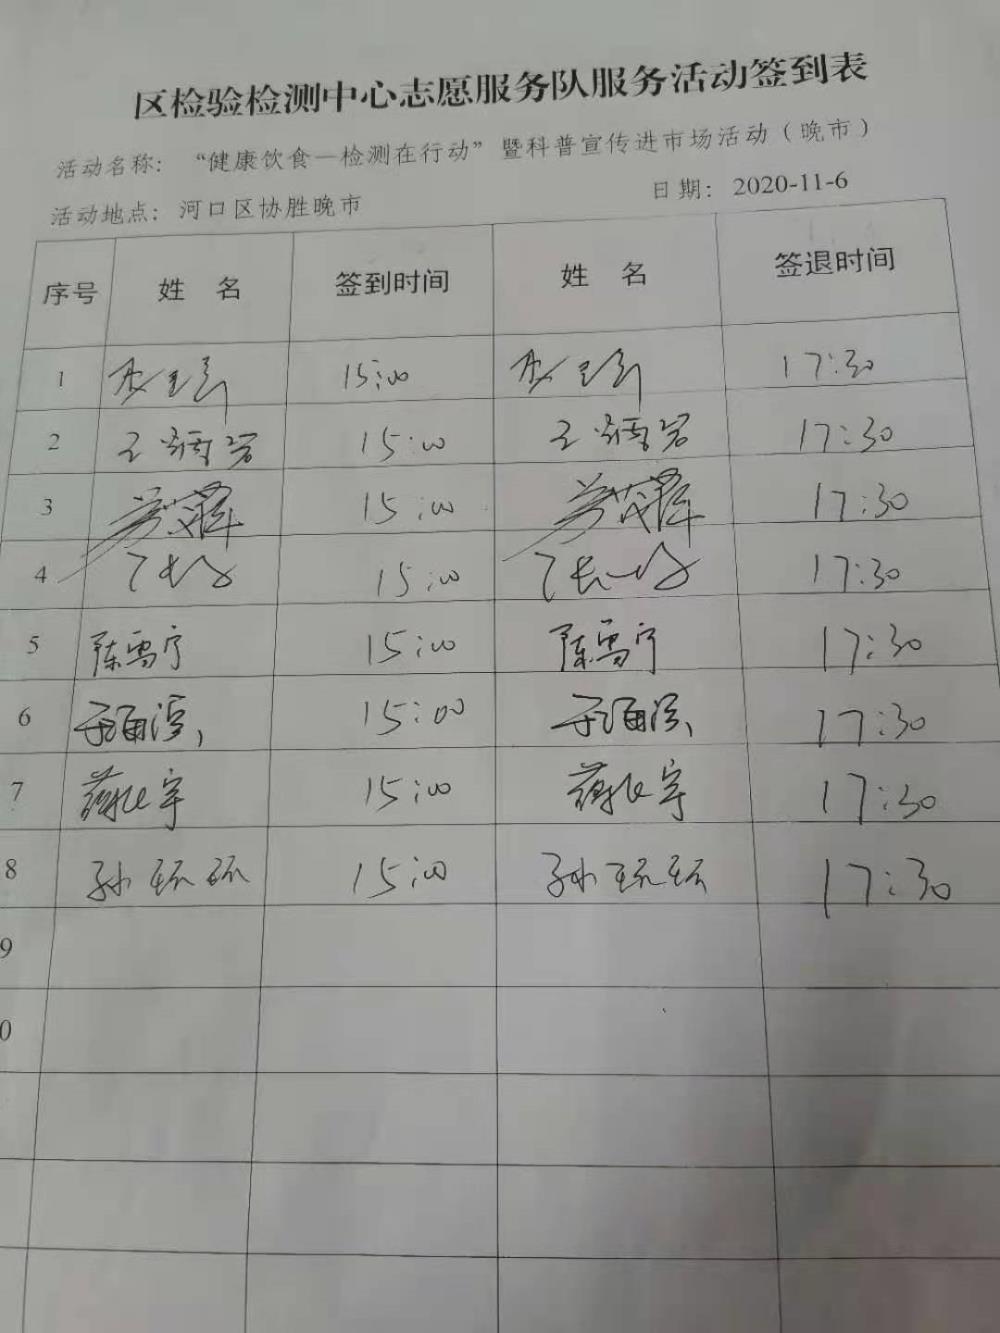 区检验检测中心志愿服务队服务活动签到表
活动名称：“健康饮食—检测在行动”暨科普宣传进市场活动（晚市）
活动地点：河口区协胜晚市 日期：2020-11-6
序号 姓 名 签到时间 姓 名 签退时间
1 15:00 17:30
2 15:00 17:30
3 15:00 17:30
4 15:00 17:30
5 陈雪宁 15:00 陈雪宁 17:30
6 15:00 17:30
7 15:00 17:30
8 孙珏珏 15:00 孙珏珏 17:30
9
0